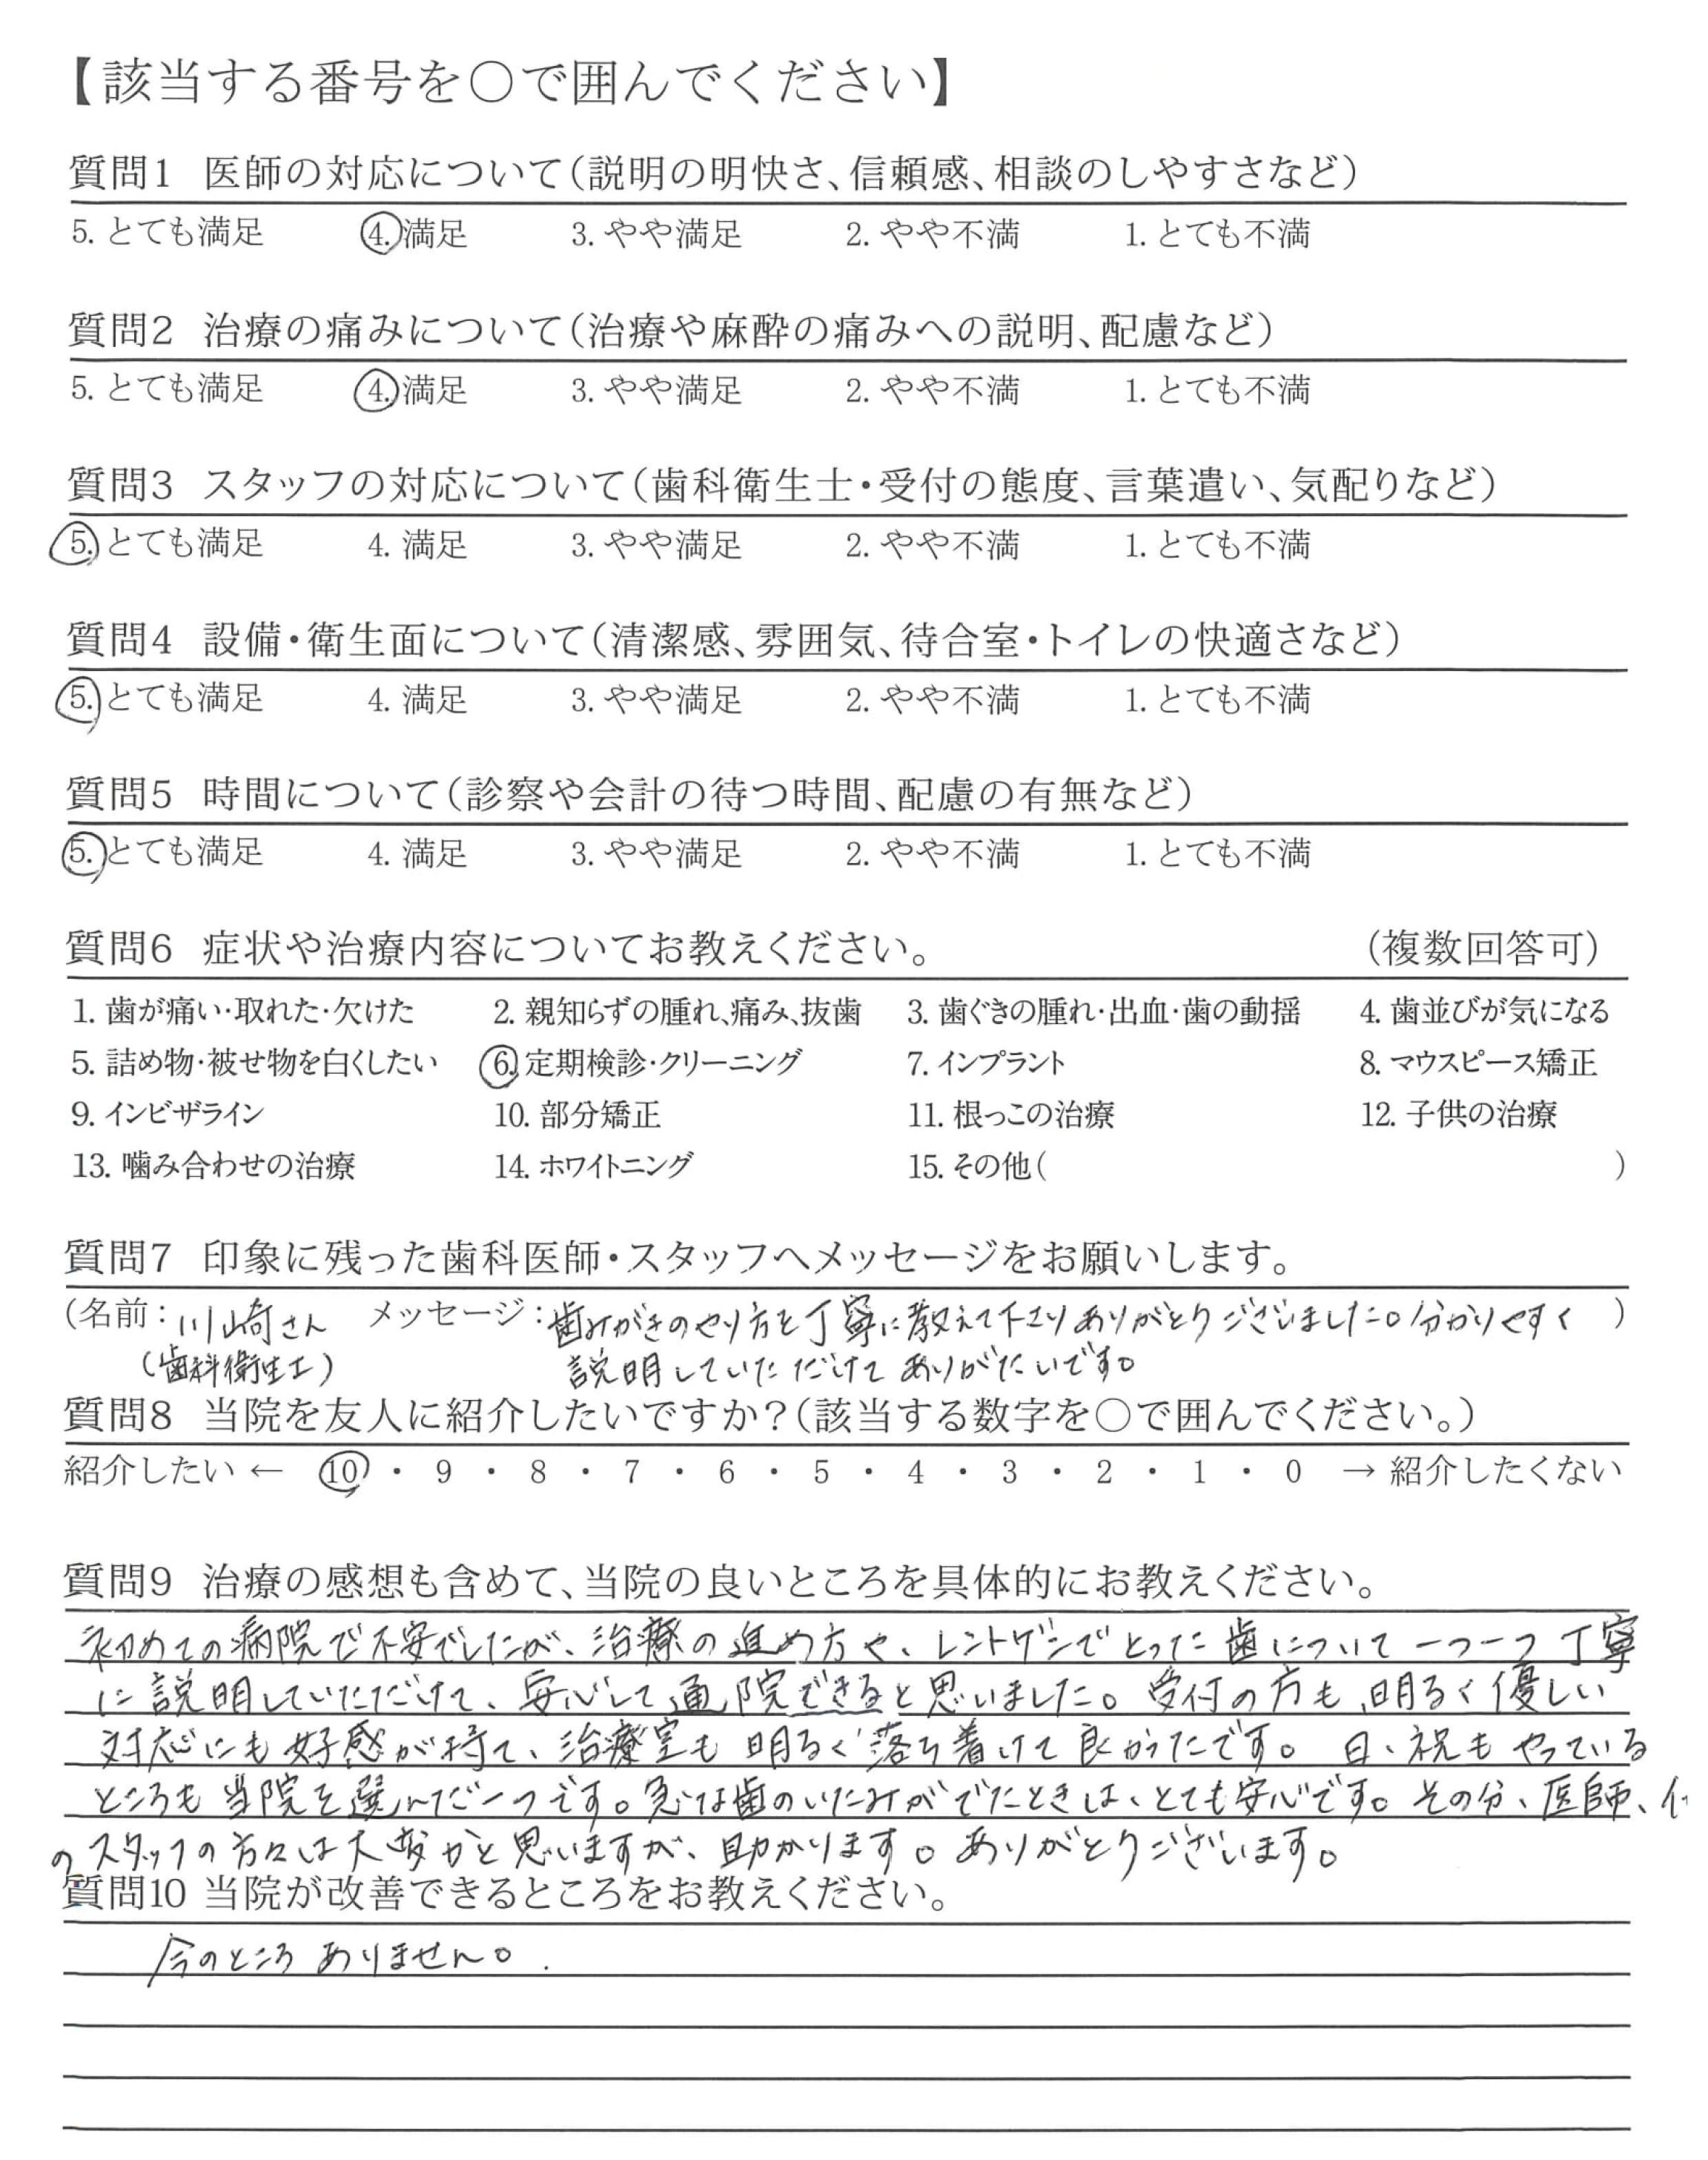 【該当する番号を○で囲んでください】
質問1 医師の対応について(説明の明快さ、信頼感、相談のしやすさなど)
5. とても満足 4. 満足 3. やや満足 2. やや不満 1. とても不満
質問2 治療の痛みについて(治療や麻酔の痛みへの説明、配慮など)
5. とても満足 4. 満足 3. やや満足 2. やや不満 1. とても不満
質問3 スタッフの対応について(歯科衛生士・受付の態度、言葉遣い、気配りなど)
5. とても満足 4. 満足 3. やや満足 2. やや不満 1. とても不満
質問4 設備・衛生面について(清潔感、雰囲気、待合室・トイレの快適さなど)
5. とても満足 4. 満足 3. やや満足 2. やや不満 1. とても不満
質問5 時間について(診察や会計の待つ時間、配慮の有無など)
5. とても満足 4. 満足 3. やや満足 2. やや不満 1. とても不満
質問6 症状や治療内容についてお教えください。 (複数回答可)
1. 歯が痛い・取れた・欠けた 2. 親知らずの腫れ、痛み、抜歯 3. 歯ぐきの腫れ・出血・歯の動揺 4. 歯並びが気になる
5. 詰め物・被せ物を白くしたい 6. 定期検診・クリーニング 7. インプラント 8. マウスピース矯正
9. インビザライン 10. 部分矯正 11. 根っこの治療 12. 子供の治療
13. 噛み合わせの治療 14. ホワイトニング 15. その他( )
質問7 印象に残った歯科医師・スタッフへメッセージをお願いします。
(名前: 川崎さん メッセージ: 歯みがきのやり方を丁寧に教えて下さりありがとうございました。分かりやすく )
(歯科衛生士) 説明していただけてありがたいです。
質問8 当院を友人に紹介したいですか?(該当する数字を○で囲んでください。)
紹介したい ← 10 ・ 9 ・ 8 ・ 7 ・ 6 ・ 5 ・ 4 ・ 3 ・ 2 ・ 1 ・ 0 → 紹介したくない
質問9 治療の感想も含めて、当院の良いところを具体的にお教えください。
初めての病院で不安でしたが、治療の進め方や、レントゲンでとった歯について一つ一つ丁寧
に説明していただけて、安心して通院できると思いました。受付の方も、明るく優しい
対応にも好感が持て、治療室も明るく落ち着けて良かったです。日、祝もやっている
ところも当院を選んだ一つです。急な歯のいたみがでたときは、とても安心です。その分、医師、
のスタッフの方々は大変かと思いますが、助かります。ありがとうございます。
質問10 当院が改善できるところをお教えください。
今のところありません。